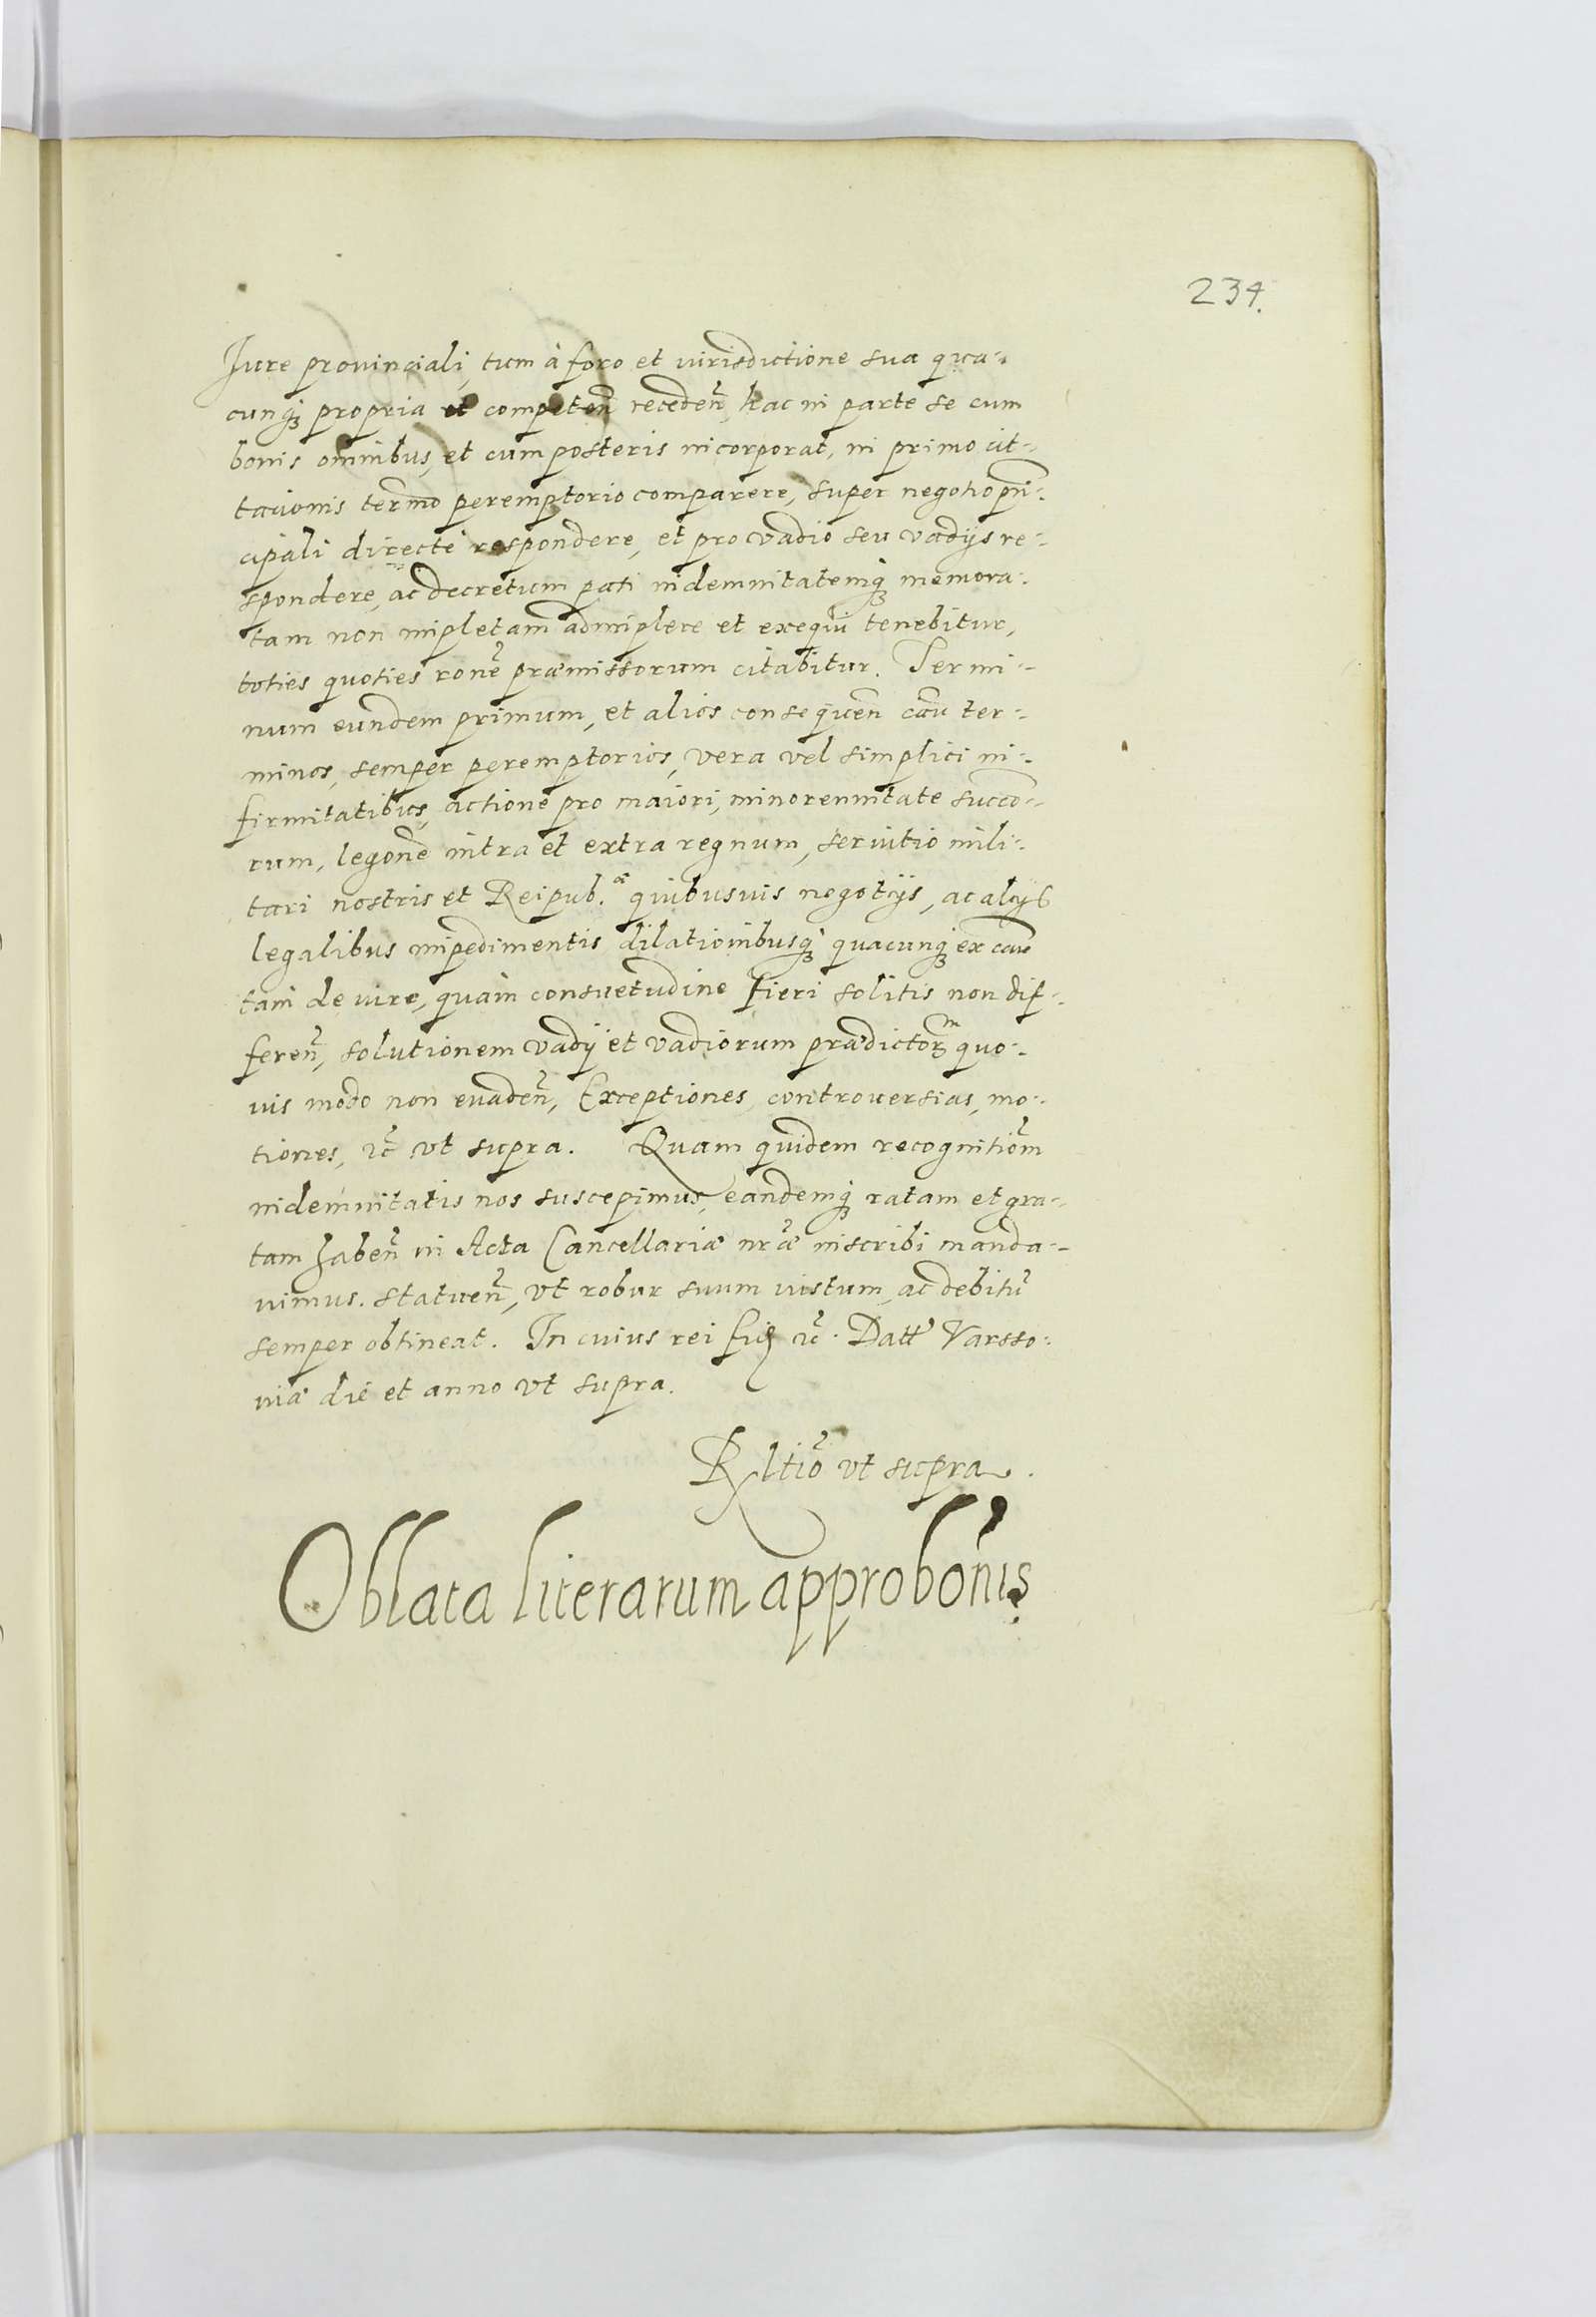 234.
Iure prouinciali, tum à foro et iurisdictione sua qua-
cunq₃ propria et competeñ recedeñ, hac in parte se cum
bonis omnibus, et cum posteris incorporat, in primo cit-
tationis termo peremptorio comparere, super negotio prin-
cipali directè respondere, et pro vadio seu vadijs re-
spondere, ac decretum pati indemnitatemq₃ memora-
tam non impletam adimplere et exequi tenebitur,
toties quoties rone præmissorum citabitur. Termi-
num eundem primum, et alios consequen cau ter-
minos, semper peremptorios, vera vel simplici in-
firmitatibus, actione pro maiori, minorennitate succo-
rum, legone intra et extra regnum, seruitio mili-
tari nostris et Reipub.æ quibusuis negotijs, ac alijs
legalibus impedimentis dilationibusq₃ quacunq₃ ex cau
tam de iure, quàm consuetudine fieri solitis non dif-
fereñ, solutionem vadij et vadiorum prædictorm quo-
uis modo non euadeñ, Exceptiones, controuersias, mo-
tiones, ec̃ vt supra. Quam quidem recognitiom
indemnitatis nos suscepimus, eandemq₃ ratam et gra-
tam habeñ in Acta Cancellariæ nr̃æ inscribi manda-
uimus. statueñ, vt robur suum iustum, ac debitũ
semper obtineat. In cuius rei fid ec̃. Datt Varsso-
uiæ die et anno vt supra.
Rltio vt supra.
Oblata literarum approbonis